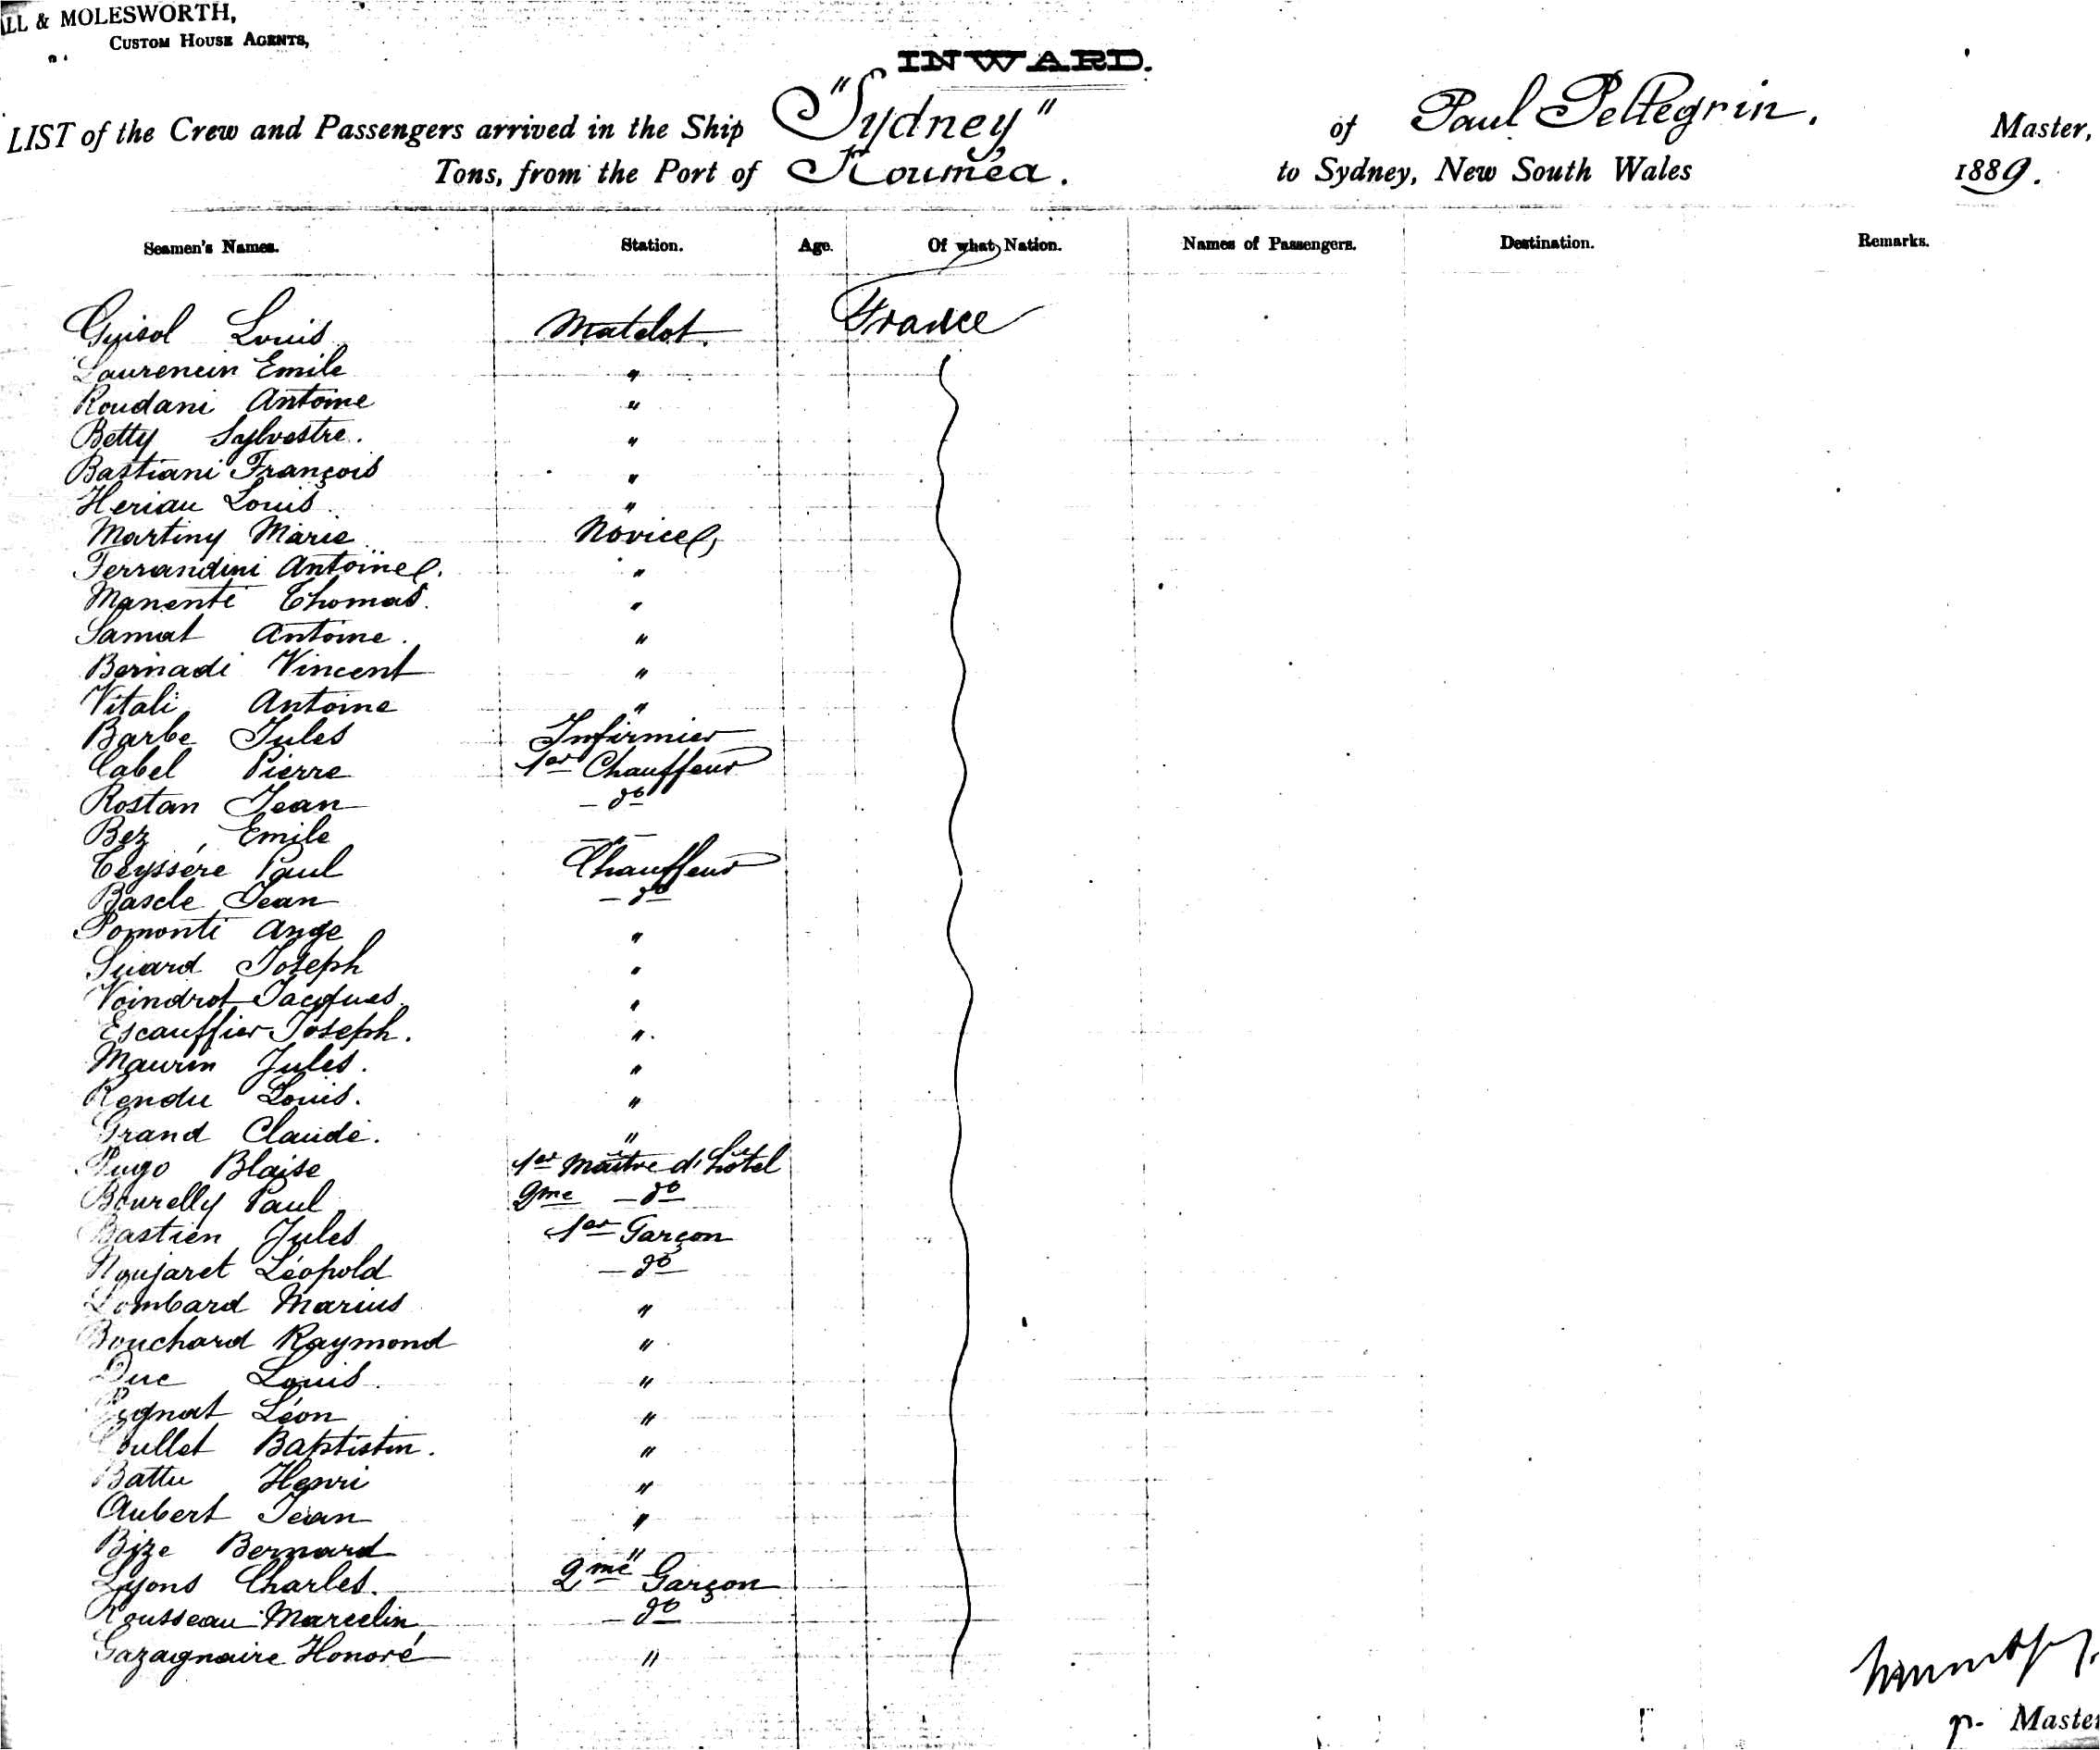 LL & MOLESWORTH,
CUSTOM HOUSE AGENTS,
INWARD.
LIST of the Crew and Passengers arrived in the Ship "Sydney" of Paul Pellegrin. Master,
Tons, from the Port of Nouméa. to Sydney, New South Wales 1889.
Seamen's Names. Station. Age. Of what Nation. Names of Passengers. Destination. Remarks.
Guisol Louis Matelot. France
Laurencin Emile "
Roudani Antoine "
Betty Sylvestre. "
Bastiani François "
Heriau Louis. "
Martiny Marie Novice
Ferrandini Antoine "
Manenti Thomas. "
Samat Antoine. "
Bernadi Vincent "
Vitali Antoine "
Barbe Jules Infirmier
Cabel Pierre 1er Chauffeur
Rostan Jean — do —
Bez Emile — " —
Teyssére Paul Chauffeur
Bascle Jean — do —
Pomonti Ange "
Suard Joseph "
Voindrot Jacques. "
Escauffier Joseph. "
Maurin Jules. "
Rendu Louis. "
Grand Claude. "
Pugo Blaise 1er Maître d'hôtel
Bourelly Paul 2me — do —
Bastien Jules 1er Garçon
Noujaret Léopold — do —
Lombard Marius "
Bouchard Raymond "
Duc Louis. "
Léon "
Baptistin. "
Battu Henri "
Aubert Jean "
Bize Bernard "
Lyons Charles. 2me Garçon
Rousseau Marcelin — do —
Gazagnaire Honoré "
p. Master